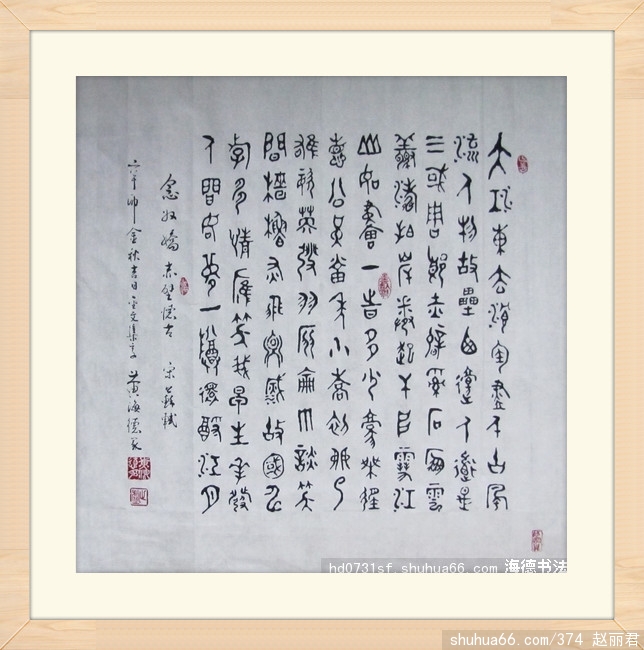 大江東去浪淘盡千古風
流人物故壘西邊人道是
三國周郎赤壁亂石雲
驚濤拍岸捲起千堆雪江
山如畫一時多少豪傑遙
想公瑾當年小喬初嫁了
雄姿英發羽扇綸巾談笑
間檣櫓灰飛煙滅故國神
遊多情應笑我早生華發
人間如夢一樽還酹江月
念奴嬌 赤壁懷古 宋 蘇軾
金秋吉日金文集字 黃海德
hd0731sf.shuhua66.com 海德书法
shuhua66.com/374 赵丽君